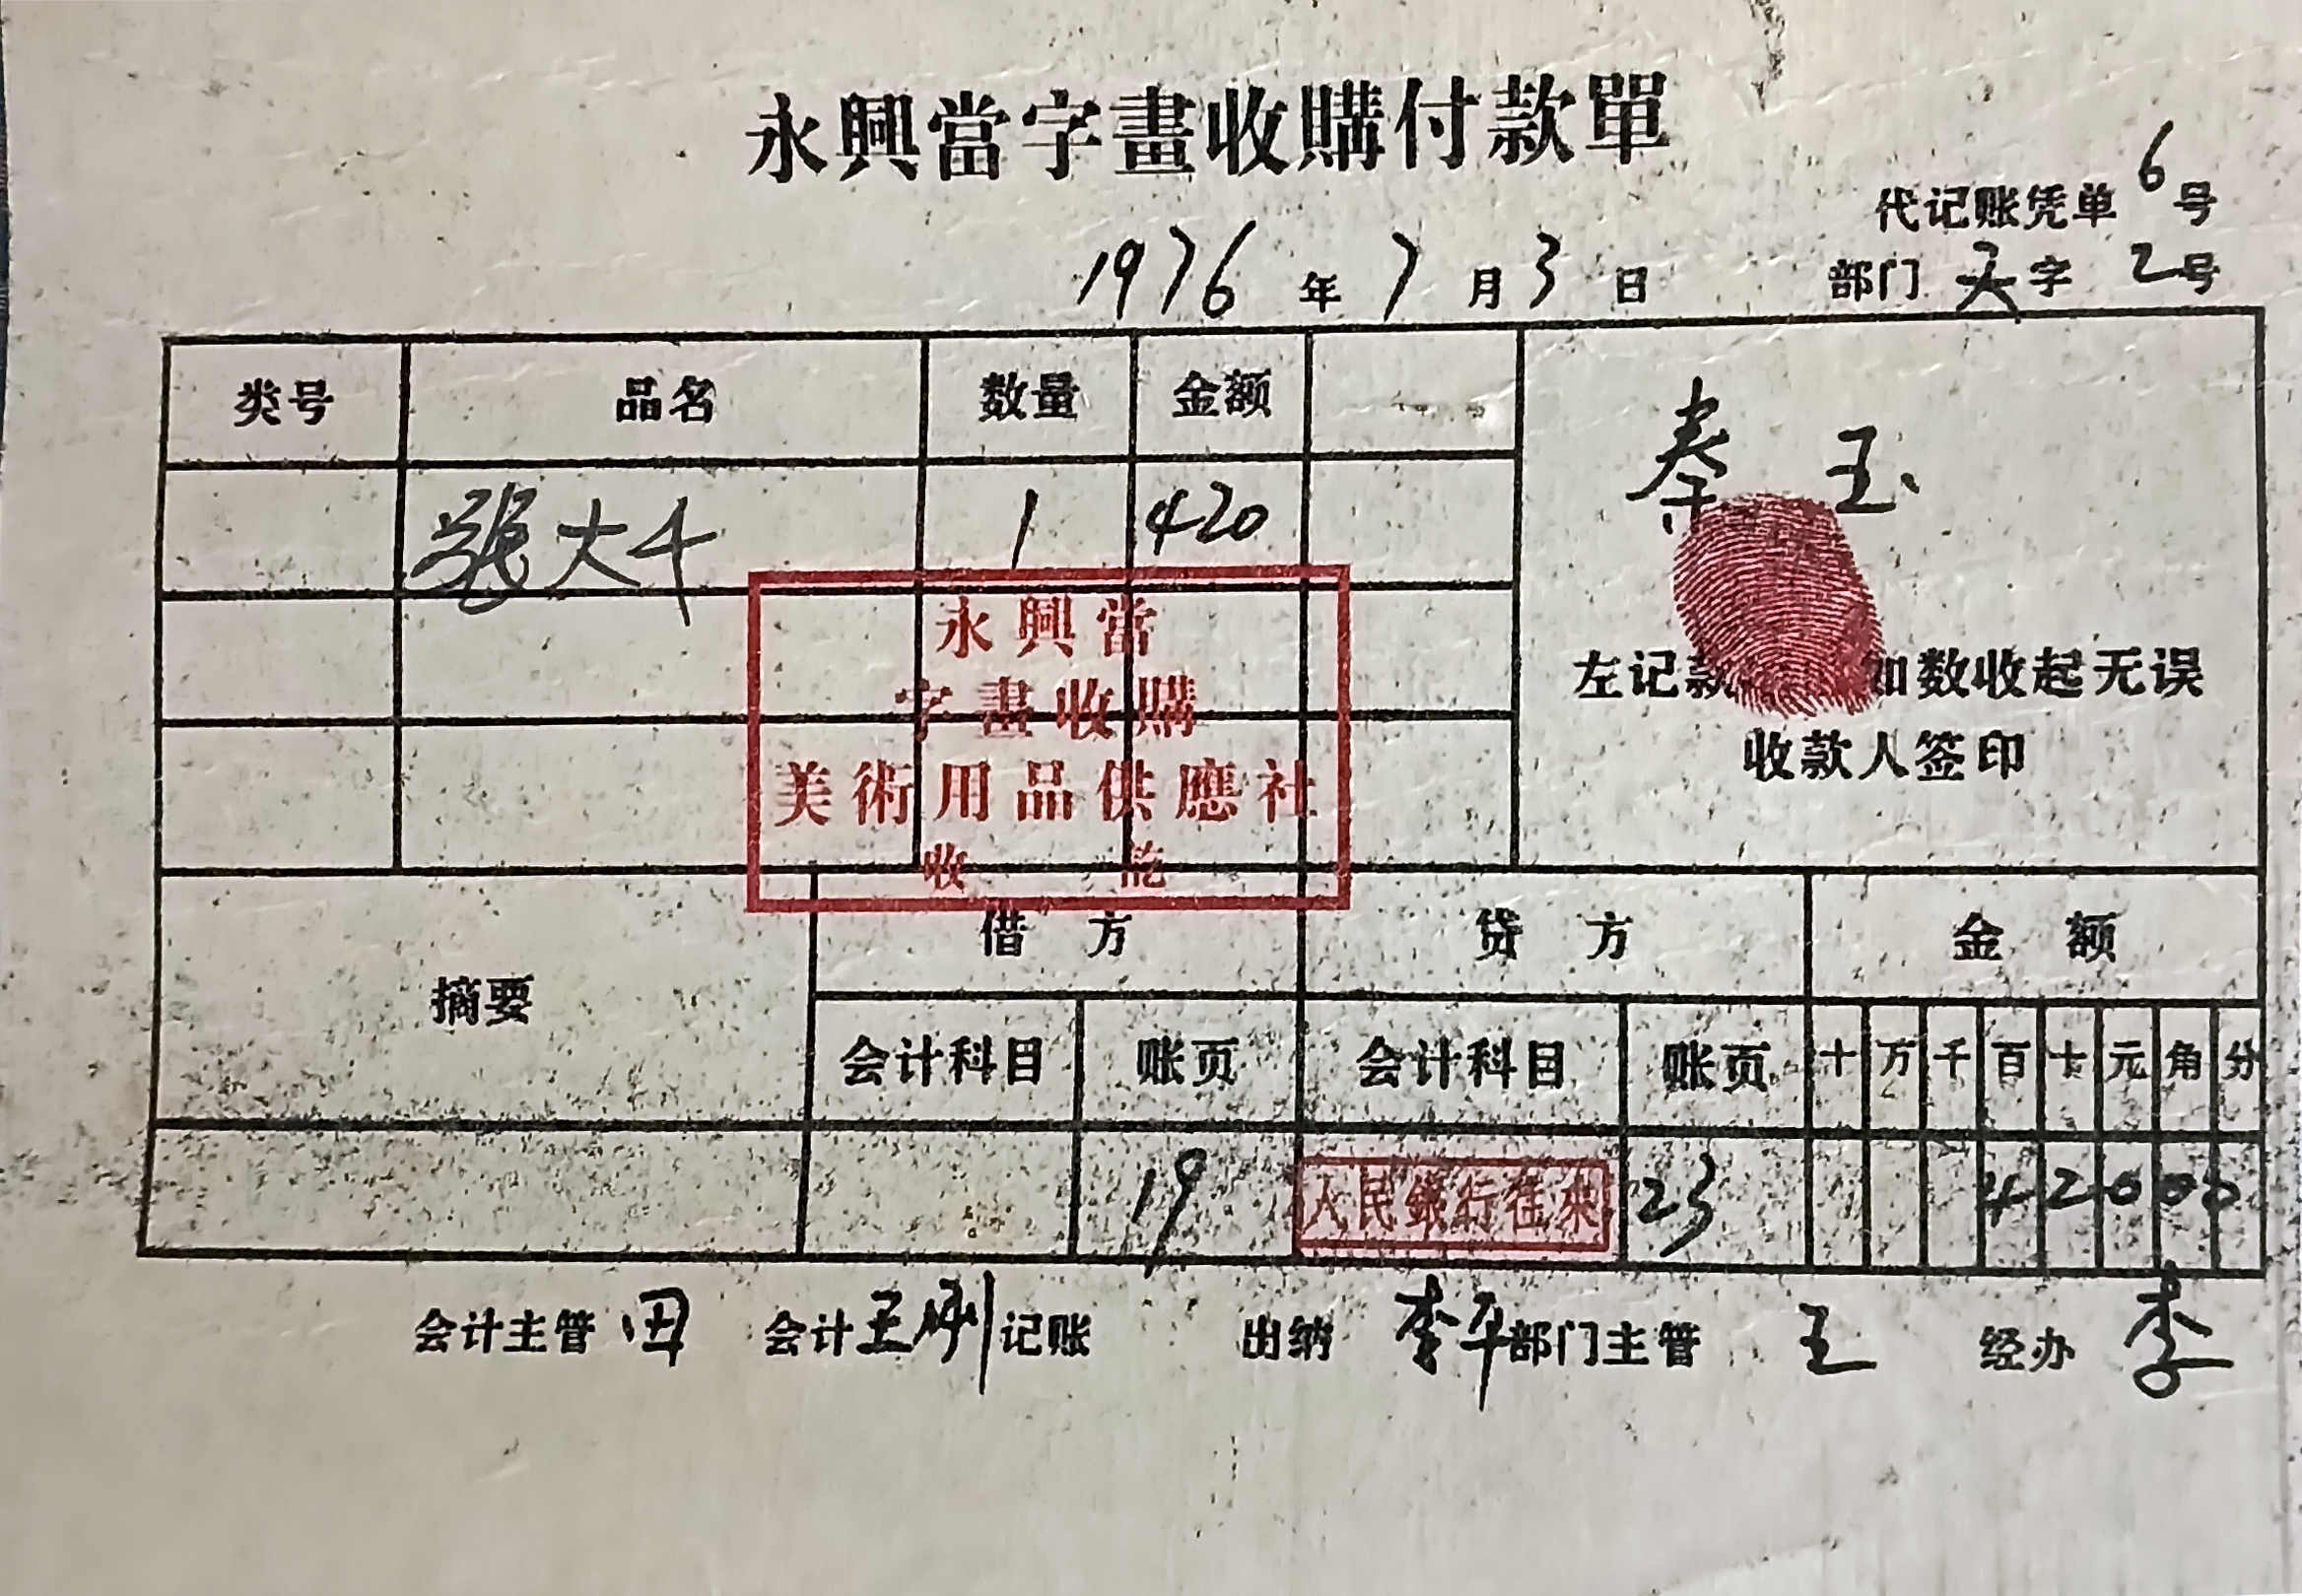 永興當字畫收購付款單
代记账凭单 6 号
1976 年 7 月 3 日
部门 天 字 2 号
类号 品名 数量 金额
張大千 1 420
秦 玉
永興當
字畫收購
美術用品供應社
收 訖
左记款 如数收起无误
收款人签印
摘要 借方 贷方 金额
会计科目 账页 会计科目 账页 十 万 千 百 十 元 角 分
19 人民銀行往來 23 4 2 0 0 0
会计主管 田 会计 王刚 记账 出纳 李平 部门主管 王 经办 李